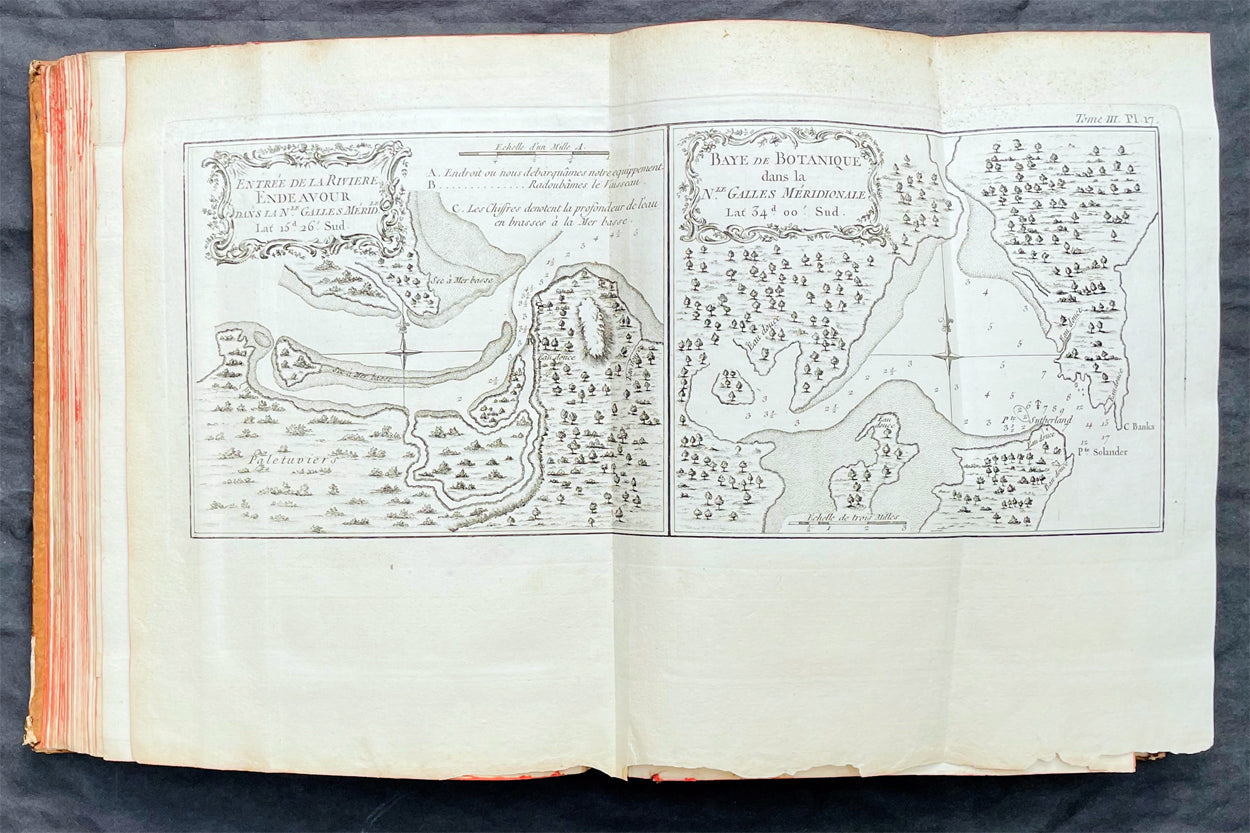 Tome III. Pl. 17.
ENTRÉE DE LA RIVIERE
ENDEAVOUR
DANS LA N.LE GALLES MÉRID.LE
Lat 15.d 26.' Sud.
Echelle d'un Mille A.
A. Endroit ou nous debarquâmes notre equippement.
B ................ Radoubâmes le Vaisseau.
C. Les Chiffres denotent la profondeur de l'eau
en brasses à la Mer basse.
Sec à Mer basse
Sec à Mer basse
Eau douce
Paletuviers
BAYE DE BOTANIQUE
dans la
N.LE GALLES MÉRIDIONALE
Lat 34.d 00.' Sud.
Eau douce
Eau douce
Eau douce
Pte Sutherland
C Banks
Pte Solander
Eau
douce
Eau douce
Eau douce
Echelle de trois Milles